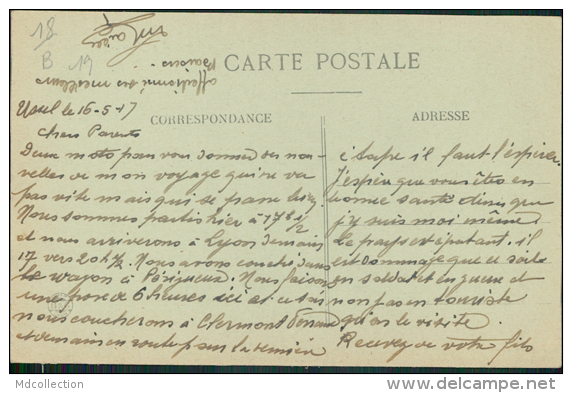 18
B 19
CARTE POSTALE
CORRESPONDANCE
ADRESSE
Ussel le 16-5-17
Chers Parents
Deux mots pour vous donner des nou-
velles de mon voyage qui ne va
pas vite mais qui se passe bien
Nous sommes partis hier à 17 h 1/2
et nous arriverons à Lyon demain
17 vers 20 h 1/2. Nous avons couché dans
le wagon à Périgueux. Nous faisons
une pose de 6 heures ici et ce soir
nous coucherons à Clermont Ferrand
et demain en route pour la dernière
étape il faut l'espérer.
J'espère que vous êtes en
bonne santé ainsi que
j'y suis moi même
Le pays est épatant. il
est dommage que ce soit
en soldat et en guerre et
non pas en touriste
qu'on le visite.
Recevez de votre fils
affectionné ses meilleurs
Baisers
Mdcollection
www.delcampe.net